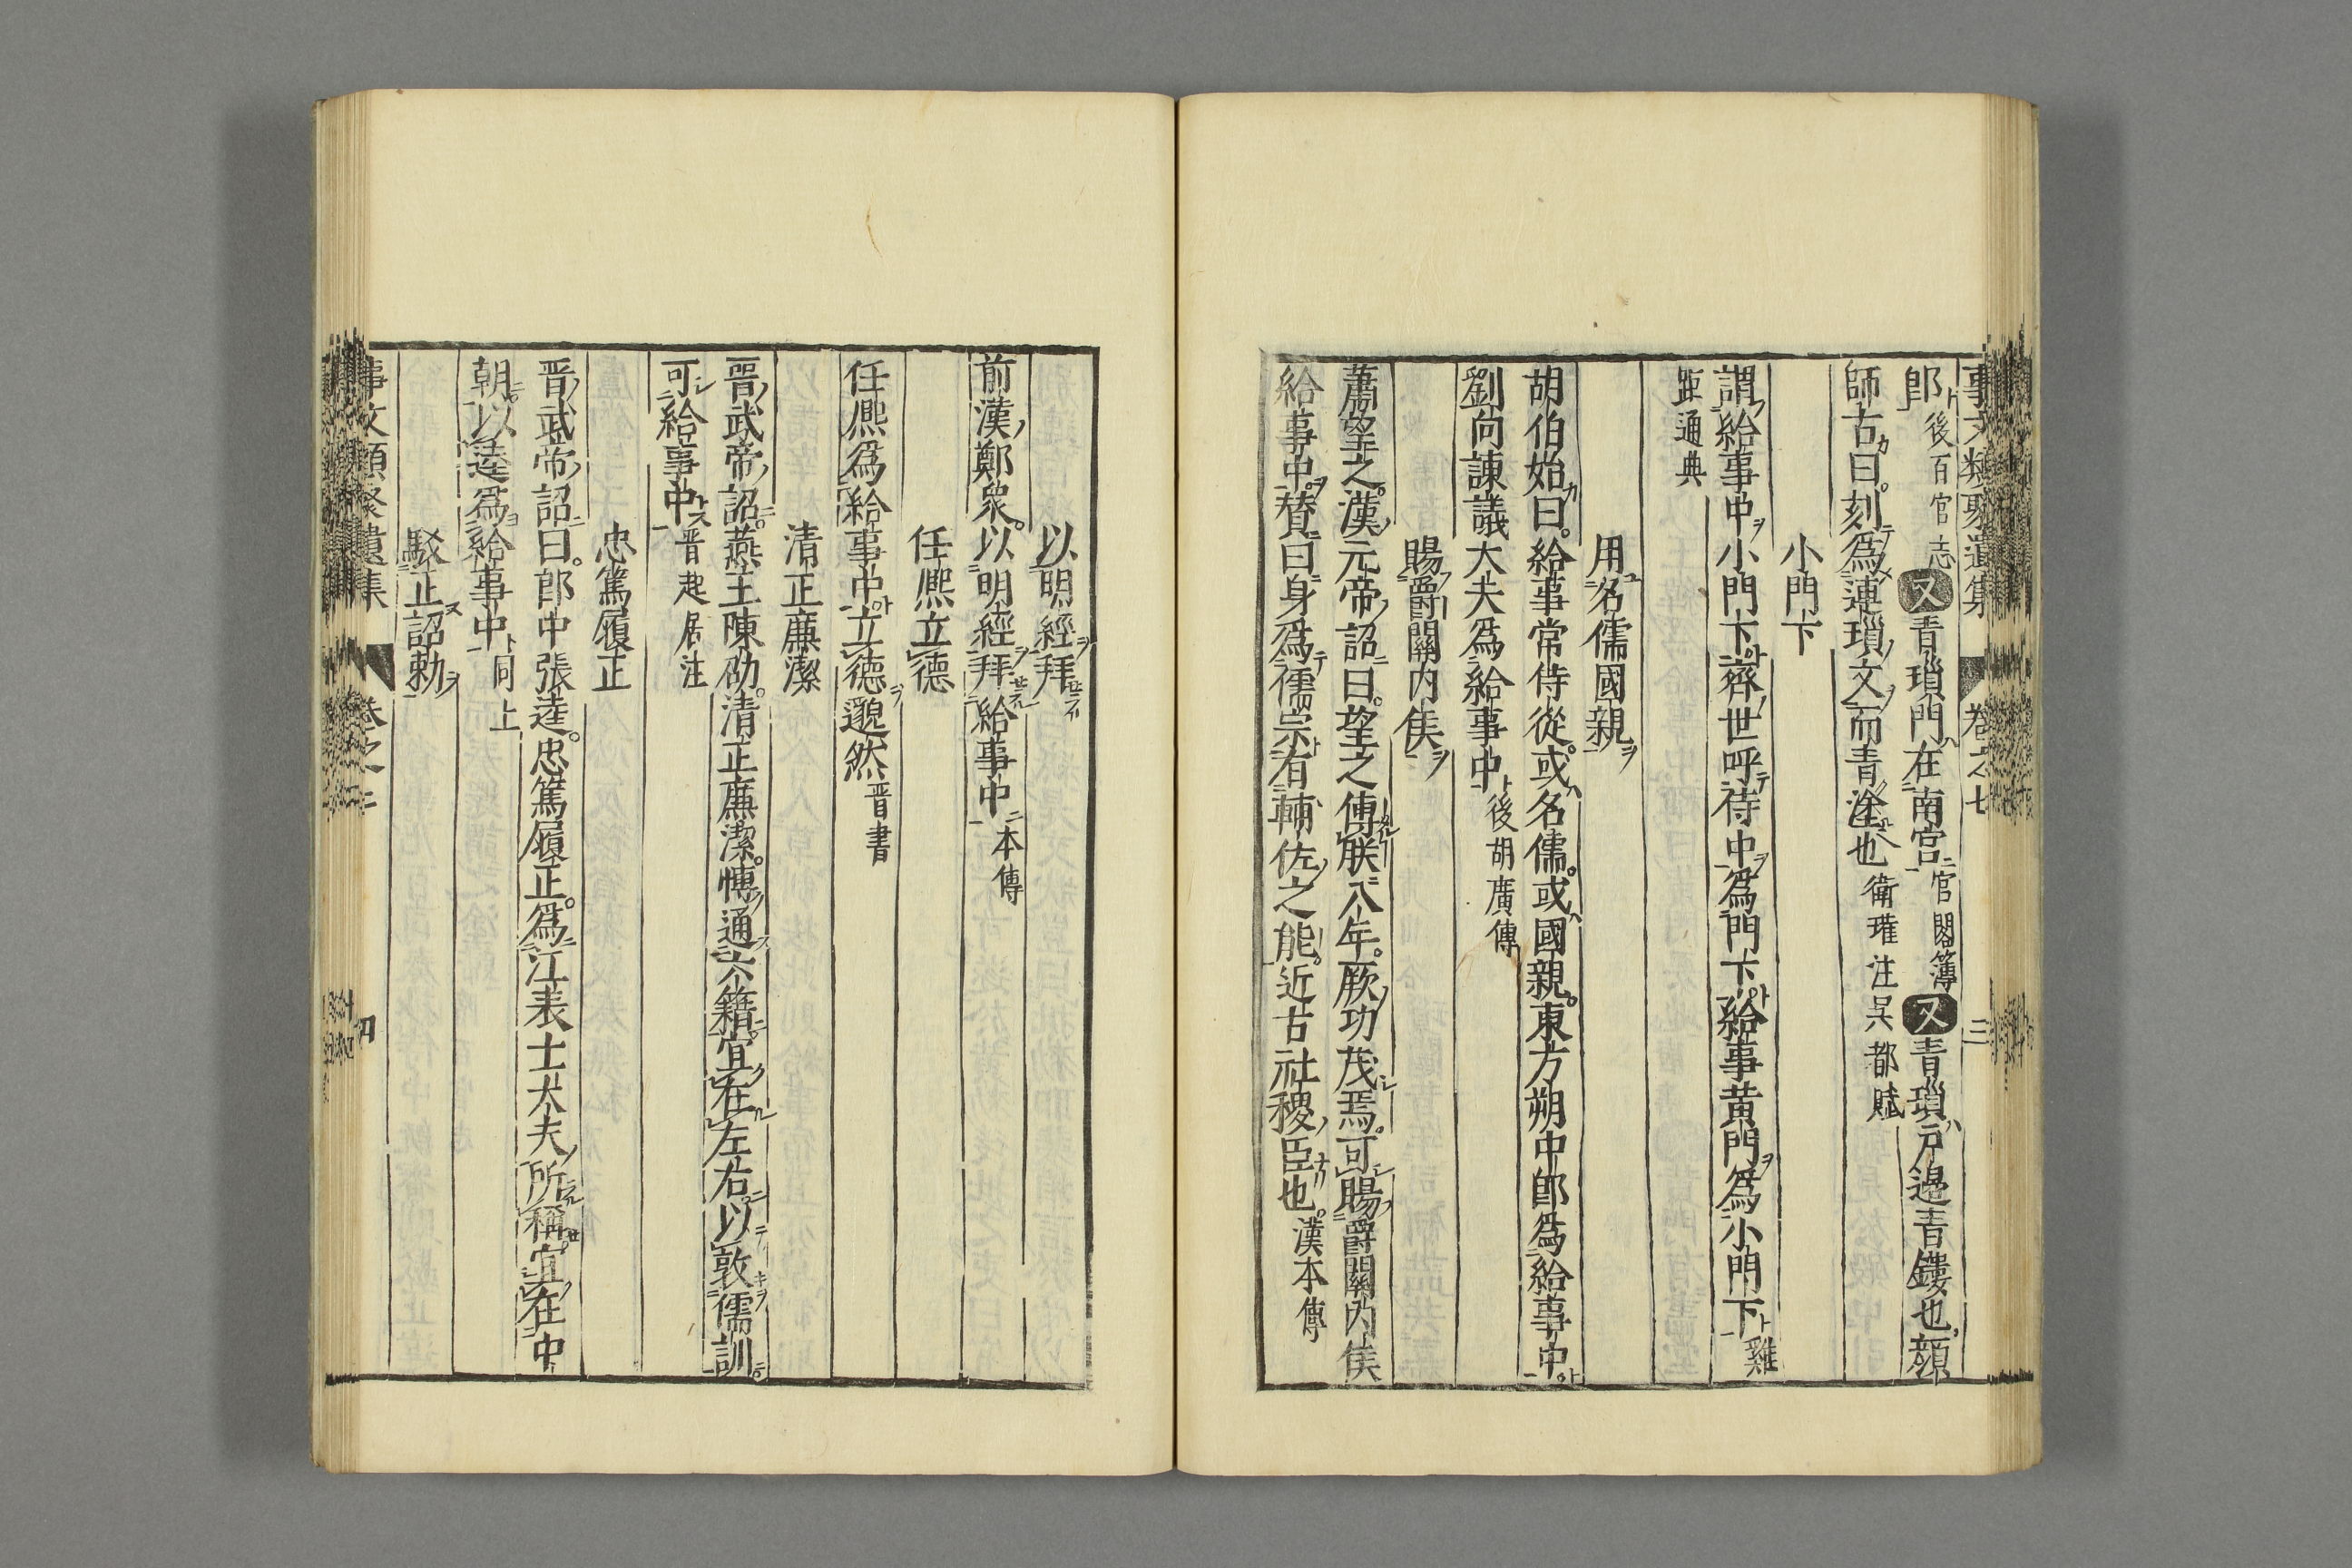 事文類聚遺集 卷之七 三
郎後百官志又青瑣門在南宮官閣簿又青瑣戶邊青鏤也顔
師古曰刻爲連瑣文而青塗也衛瓘注吳都賦
小門下
謂給事中小門下齊世呼侍中爲門下給事黃門爲小門下雞
距通典
用名儒國親
胡伯始曰給事常侍從或名儒或國親東方朔中郎爲給事中
劉向諫議大夫爲給事中後胡廣傳
賜爵關内侯
蕭望之漢元帝詔曰望之傅朕八年厥功茂焉可賜爵關内侯
給事中賛曰身爲儒宗有輔佐之能近古社稷臣也漢本傳
以明經拜
前漢鄭衆以明經拜給事中本傳
任熈立德
任熈爲給事中立德邈然晋書
清正廉潔
晋武帝詔燕王陳劭清正廉潔博通六籍宜在左右以敦儒訓
可給事中晋起居注
忠篤履正
晋武帝詔曰郎中張逵忠篤履正爲江表士大夫所稱宜在中
朝以逵爲給事中同上
駁正詔勅
事文類聚遺集 卷之七 四